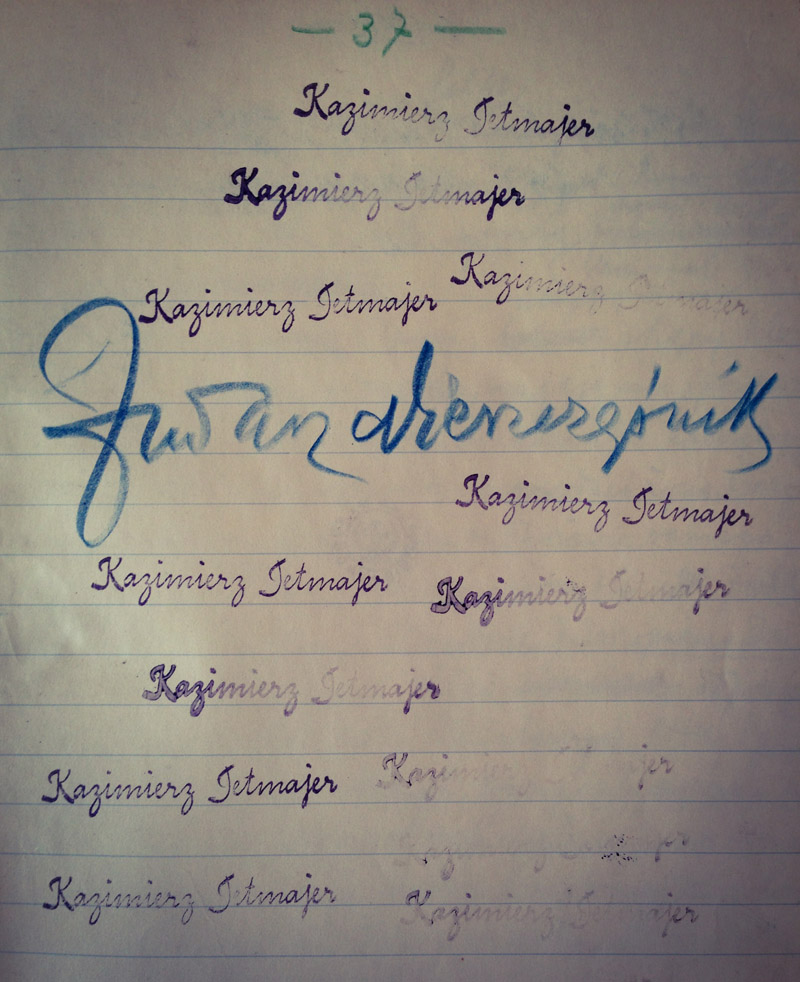 — 37 —
Kazimierz Tetmajer
Kazimierz Tetmajer
Kazimierz Tetmajer
Kazimierz Tetmajer
Kazimierz Tetmajer
Kazimierz Tetmajer
Kazimierz Tetmajer
Kazimierz Tetmajer
Kazimierz Tetmajer
Kazimierz
Kazimierz Tetmajer
Kazimierz Tetmajer